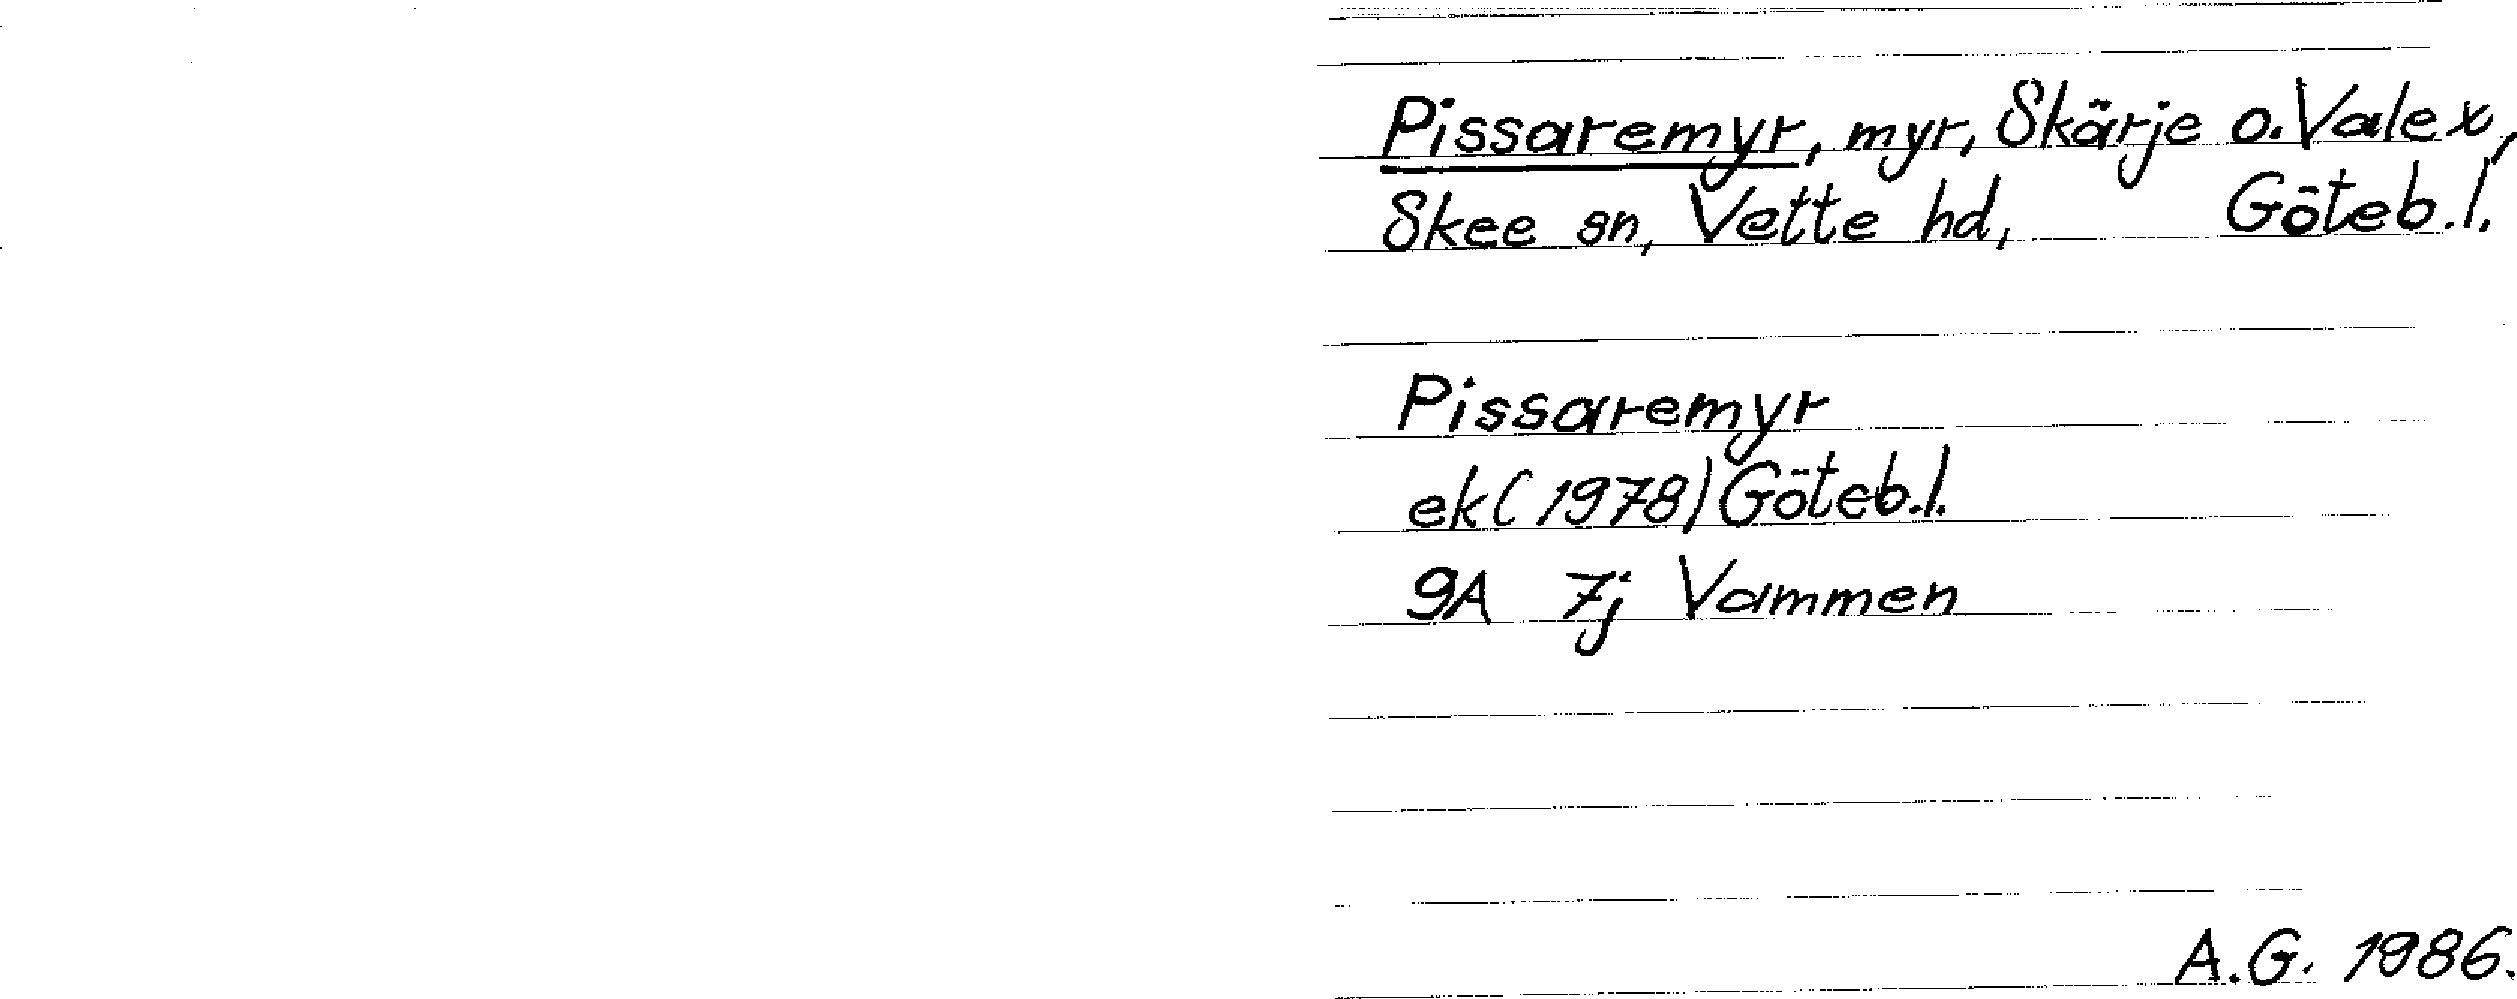 Pissaremyr, myr, Skärje o. Vale x,
Skee sn, Vette hd, Göteb. l.
Pissaremyr
ek (1978) Göteb. l.
9A 7j Vammen
A.G. 1986.